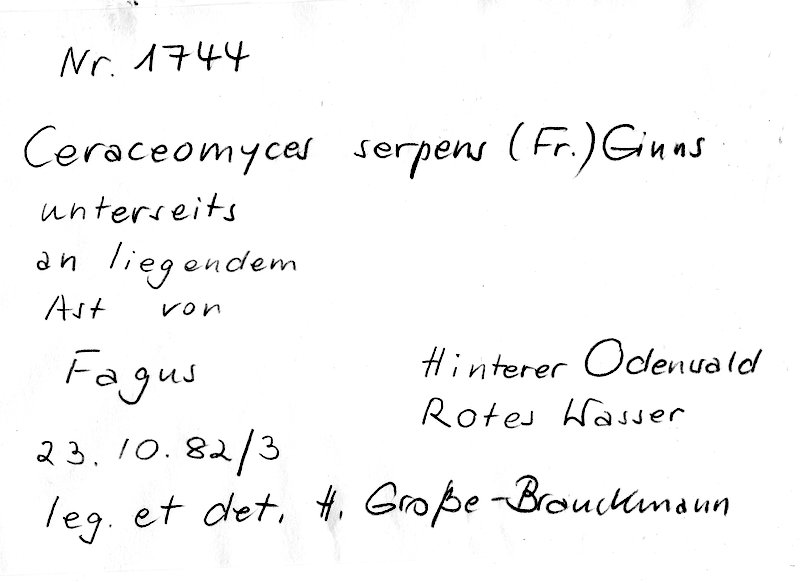 Nr. 1744
Ceraceomyces serpens (Fr.) Ginns
unterseits
an liegendem
Ast von
Fagus
Hinterer Odenwald
Rotes Wasser
23.10.82/3
leg. et det. H. Große-Brauckmann